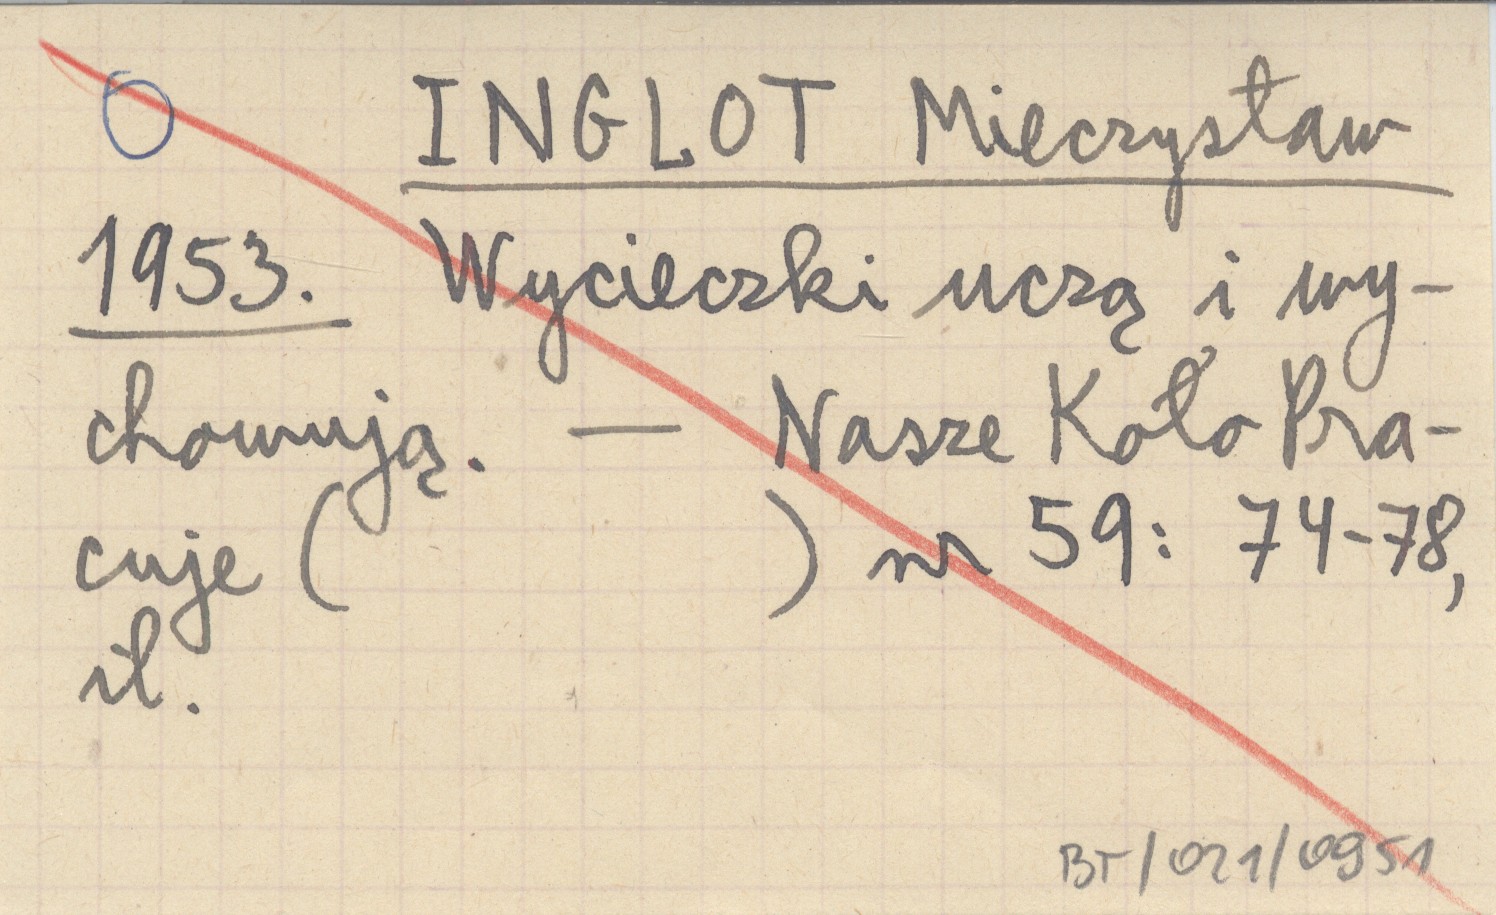 INGLOT Mieczysław
1953. Wycieczki uczą i wy-
chowują. — Nasze Koło Pra-
cuje ( ) nr 59: 74-78,
il.
BT/021/0951